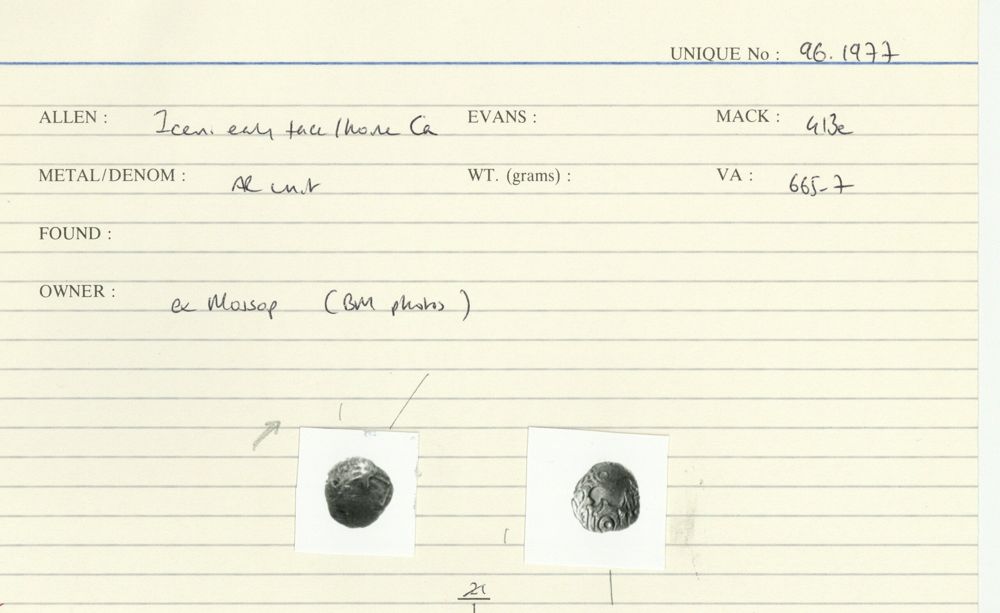 UNIQUE No : 96.1977
ALLEN : Iceni early face/horse Ca EVANS : MACK : 413e
METAL/DENOM : AR unit WT. (grams) : VA : 665-7
FOUND :
OWNER : ex Mossop (BM photos)
1